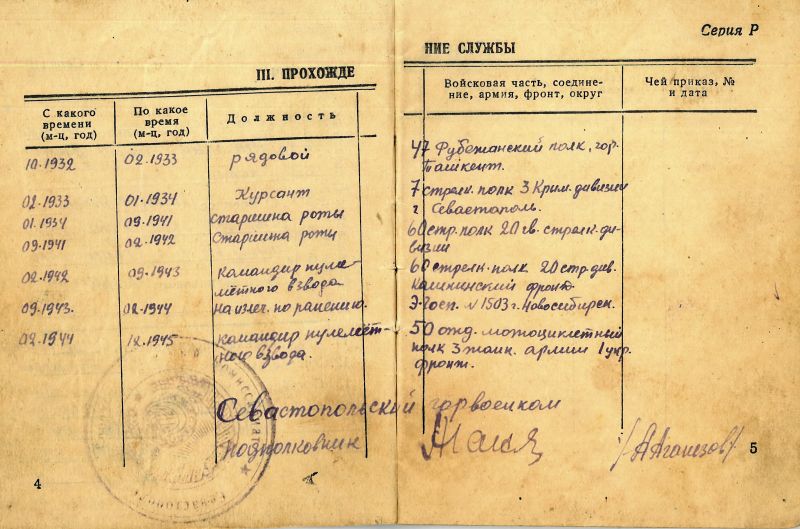 Серия Р
III. ПРОХОЖДЕ
НИЕ СЛУЖБЫ
С какого времени (м-ц, год)
По какое время (м-ц, год)
Должность
Войсковая часть, соедине-
ние, армия, фронт, округ
Чей приказ, №
и дата
10.1932 02.1933 рядовой
47 Рубежанский полк, гор.
Ташкент.
02.1933 01.1934 Курсант
7 стрелк. полк 3 Крым. дивизии
г Севастополь.
01.1934 09.1941 старшина роты
09.1941 02.1942 Старшина роты
60 стр. полк 20 гв. стрелк. ди-
визии
02.1942 09.1943 командир пуле-
мётного взвода
60 стрелк. полк 20 стр. див.
Калининский фронт
09.1943. 02.1944 На излеч. по ранению.
Э-Госп. N 1503 г. Новосибирск.
02.1944 12.1945 командир пулемёт-
ного взвода.
50 отд. мотоциклетный
полк 3 танк. армии 1 укр.
фронт.
Севастопольский горвоенком
подполковник
4
5